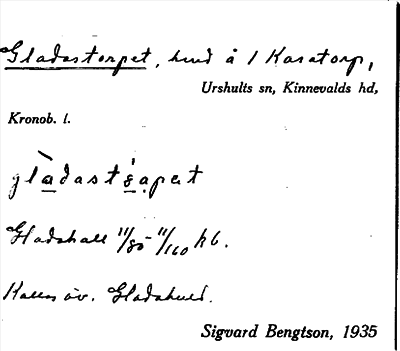 Gladastorpet, hmd å 1 Karatorp,
Urshults sn, Kinnevalds hd,
Kronob. l.
Gladahall 11/85 11/160 hb.
Kallas äv. Gladahult.
Sigvard Bengtson, 1935